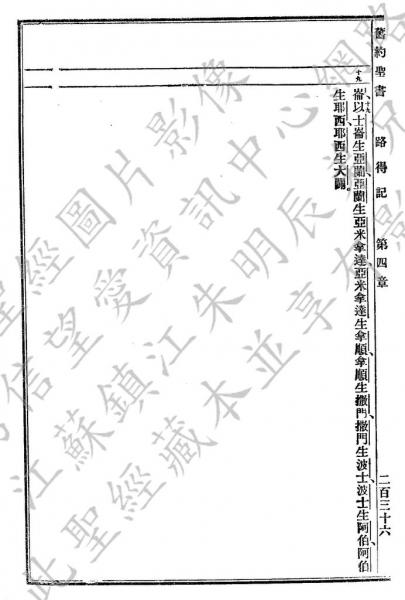 舊約聖書 路得記 第四章 二百三十六
十九
崙十九以士崙生亞蘭亞蘭生亞米拿達亞米拿達生拿順拿順生撒門撒門生波士波士生阿伯阿伯
生耶西耶西生大闢
聖經圖片影像
信望愛資訊中心網路
江蘇鎮江朱明辰
此聖經藏本並享